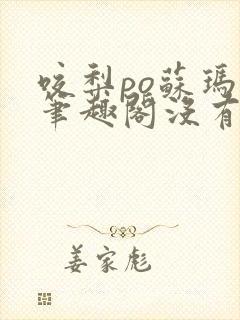 咬梨po蘇瑪
筆趣閣沒有
姜家彪